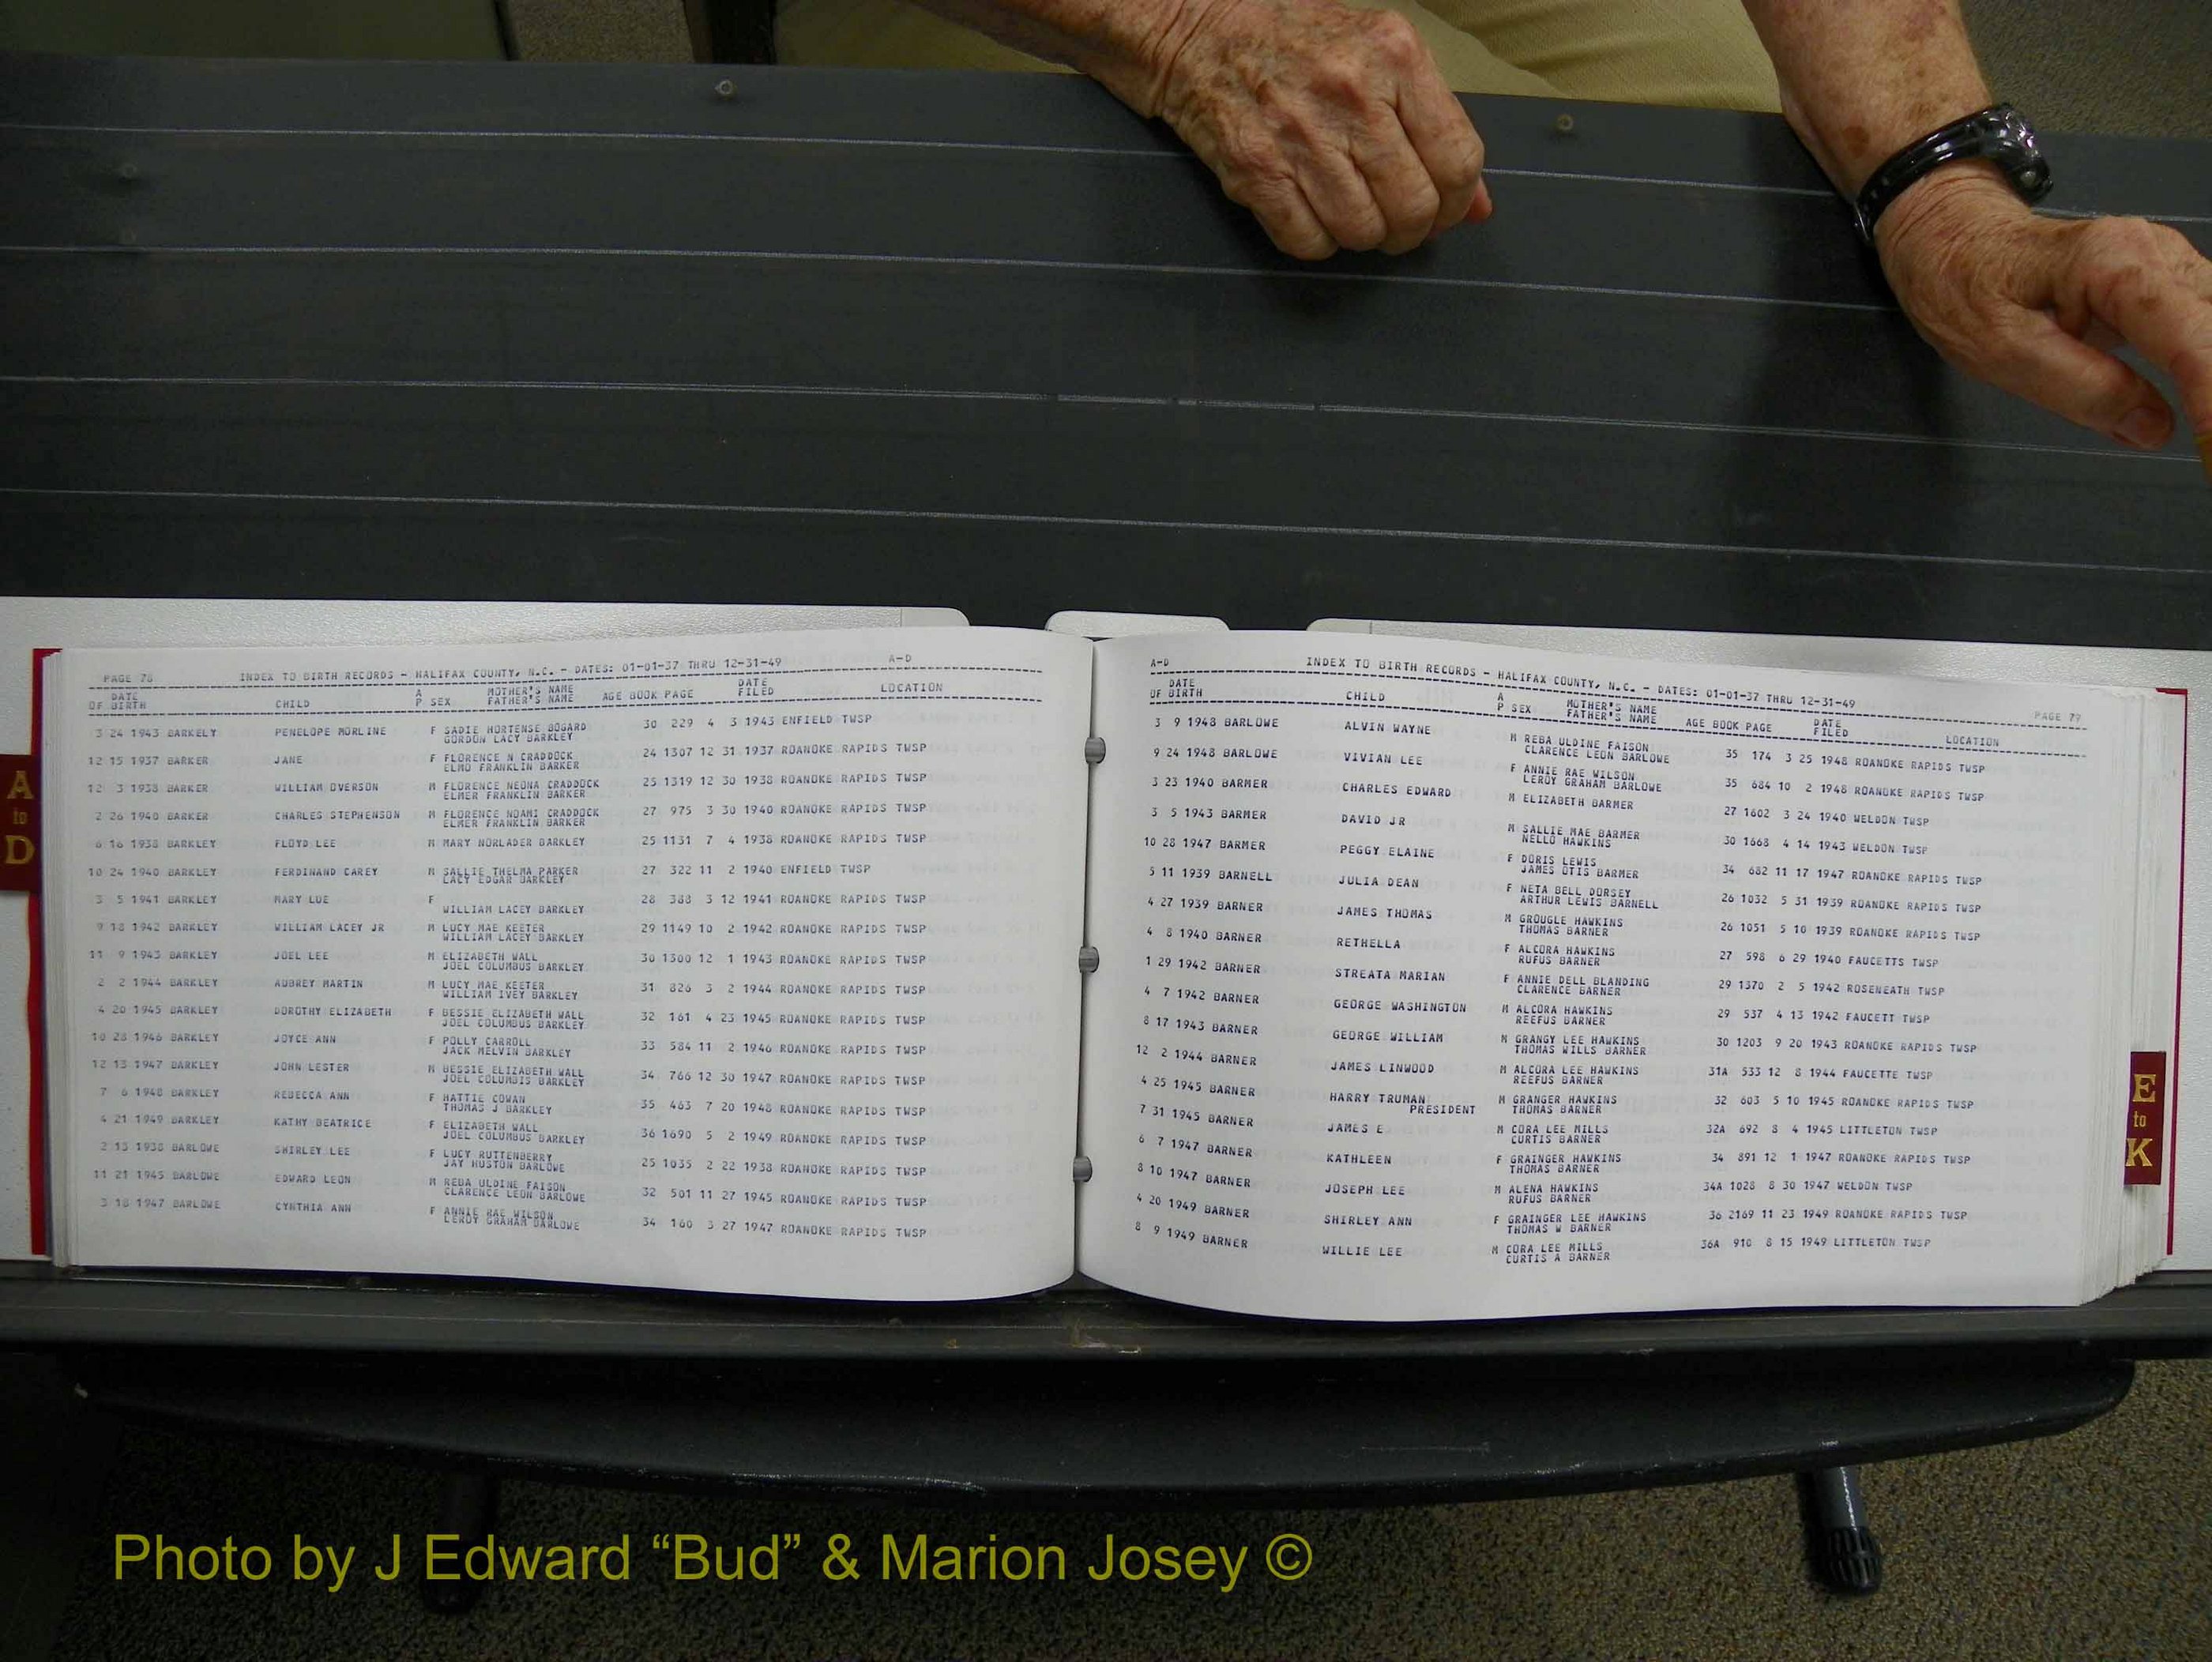 PAGE 78 INDEX TO BIRTH RECORDS - HALIFAX COUNTY, N.C. - DATES: 01-01-37 THRU 12-31-49 A-D
DATE OF BIRTH CHILD A P SEX MOTHER'S NAME FATHER'S NAME AGE BOOK PAGE DATE FILED LOCATION
3 24 1943 BARKELY PENELOPE MORLINE F SADIE HORTENSE BOGARD 30 229 4 3 1943 ENFIELD TWSP
GORDON LACY BARKLEY
12 15 1937 BARKER JANE F FLORENCE N CRADDOCK 24 1307 12 31 1937 ROANOKE RAPIDS TWSP
ELMO FRANKLIN BARKER
12 3 1938 BARKER WILLIAM OVERSON M FLORENCE NEONA CRADDOCK 25 1319 12 30 1938 ROANOKE RAPIDS TWSP
ELMER FRANKLIN BARKER
2 26 1940 BARKER CHARLES STEPHENSON M FLORENCE NOAMI CRADDOCK 27 975 3 30 1940 ROANOKE RAPIDS TWSP
ELMER FRANKLIN BARKER
6 16 1938 BARKLEY FLOYD LEE M MARY NORLADER BARKLEY 25 1131 7 4 1938 ROANOKE RAPIDS TWSP
10 24 1940 BARKLEY FERDINAND CAREY M SALLIE THELMA PARKER 27 322 11 2 1940 ENFIELD TWSP
LACY EDGAR BARKLEY
3 5 1941 BARKLEY MARY LUE F 28 388 3 12 1941 ROANOKE RAPIDS TWSP
WILLIAM LACEY BARKLEY
9 18 1942 BARKLEY WILLIAM LACEY JR M LUCY MAE KEETER 29 1149 10 2 1942 ROANOKE RAPIDS TWSP
WILLIAM LACEY BARKLEY
11 9 1943 BARKLEY JOEL LEE M ELIZABETH WALL 30 1300 12 1 1943 ROANOKE RAPIDS TWSP
JOEL COLUMBUS BARKLEY
2 2 1944 BARKLEY AUBREY MARTIN M LUCY MAE KEETER 31 826 3 2 1944 ROANOKE RAPIDS TWSP
WILLIAM IVEY BARKLEY
4 20 1945 BARKLEY DOROTHY ELIZABETH F BESSIE ELIZABETH WALL 32 161 4 23 1945 ROANOKE RAPIDS TWSP
JOEL COLUMBUS BARKLEY
10 28 1946 BARKLEY JOYCE ANN F POLLY CARROLL 33 584 11 2 1946 ROANOKE RAPIDS TWSP
JACK MELVIN BARKLEY
12 13 1947 BARKLEY JOHN LESTER M BESSIE ELIZABETH WALL 34 766 12 30 1947 ROANOKE RAPIDS TWSP
JOEL COLUMBIS BARKLEY
7 6 1948 BARKLEY REBECCA ANN F HATTIE COWAN 35 463 7 20 1948 ROANOKE RAPIDS TWSP
THOMAS J BARKLEY
4 21 1949 BARKLEY KATHY BEATRICE F ELIZABETH WALL 36 1690 5 2 1949 ROANOKE RAPIDS TWSP
JOEL COLUMBUS BARKLEY
2 13 1938 BARLOWE SHIRLEY LEE F LUCY RUTTENBERRY 25 1035 2 22 1938 ROANOKE RAPIDS TWSP
JAY HUSTON BARLOWE
11 21 1945 BARLOWE EDWARD LEON M REBA ULDINE FAISON 32 501 11 27 1945 ROANOKE RAPIDS TWSP
CLARENCE LEON BARLOWE
3 18 1947 BARLOWE CYNTHIA ANN F ANNIE RAE WILSON 34 160 3 27 1947 ROANOKE RAPIDS TWSP
LEROY GRAHAM BARLOWE
A-D INDEX TO BIRTH RECORDS - HALIFAX COUNTY, N.C. - DATES: 01-01-37 THRU 12-31-49 PAGE 79
DATE OF BIRTH CHILD A P SEX MOTHER'S NAME FATHER'S NAME AGE BOOK PAGE DATE FILED LOCATION
3 9 1948 BARLOWE ALVIN WAYNE M REBA ULDINE FAISON 35 174 3 25 1948 ROANOKE RAPIDS TWSP
CLARENCE LEON BARLOWE
9 24 1948 BARLOWE VIVIAN LEE F ANNIE RAE WILSON 35 684 10 2 1948 ROANOKE RAPIDS TWSP
LEROY GRAHAM BARLOWE
3 23 1940 BARMER CHARLES EDWARD M ELIZABETH BARMER 27 1602 3 24 1940 WELDON TWSP
3 5 1943 BARMER DAVID JR M SALLIE MAE BARMER 30 1668 4 14 1943 WELDON TWSP
NELLO HAWKINS
10 28 1947 BARMER PEGGY ELAINE F DORIS LEWIS 34 682 11 17 1947 ROANOKE RAPIDS TWSP
JAMES OTIS BARMER
5 11 1939 BARNELL JULIA DEAN F NETA BELL DORSEY 26 1032 5 31 1939 ROANOKE RAPIDS TWSP
ARTHUR LEWIS BARNELL
4 27 1939 BARNER JAMES THOMAS M GROUGLE HAWKINS 26 1051 5 10 1939 ROANOKE RAPIDS TWSP
THOMAS BARNER
4 8 1940 BARNER RETHELLA F ALCORA HAWKINS 27 598 6 29 1940 FAUCETTS TWSP
RUFUS BARNER
1 29 1942 BARNER STREATA MARIAN F ANNIE DELL BLANDING 29 1370 2 5 1942 ROSENEATH TWSP
CLARENCE BARNER
4 7 1942 BARNER GEORGE WASHINGTON M ALCORA HAWKINS 29 537 4 13 1942 FAUCETT TWSP
REEFUS BARNER
8 17 1943 BARNER GEORGE WILLIAM M GRANGY LEE HAWKINS 30 1203 9 20 1943 ROANOKE RAPIDS TWSP
THOMAS WILLS BARNER
12 2 1944 BARNER JAMES LINWOOD M ALCORA LEE HAWKINS 31A 533 12 8 1944 FAUCETTE TWSP
REEFUS BARNER
4 25 1945 BARNER HARRY TRUMAN M GRANGER HAWKINS 32 603 5 10 1945 ROANOKE RAPIDS TWSP
PRESIDENT THOMAS BARNER
7 31 1945 BARNER JAMES E M CORA LEE MILLS 32A 692 8 4 1945 LITTLETON TWSP
CURTIS BARNER
6 7 1947 BARNER KATHLEEN F GRAINGER HAWKINS 34 891 12 1 1947 ROANOKE RAPIDS TWSP
THOMAS BARNER
8 10 1947 BARNER JOSEPH LEE M ALENA HAWKINS 34A 1028 8 30 1947 WELDON TWSP
RUFUS BARNER
4 20 1949 BARNER SHIRLEY ANN F GRAINGER LEE HAWKINS 36 2169 11 23 1949 ROANOKE RAPIDS TWSP
THOMAS W BARNER
8 9 1949 BARNER WILLIE LEE M CORA LEE MILLS 36A 910 8 15 1949 LITTLETON TWSP
CURTIS A BARNER
A
to
D
E
to
K
Photo by J Edward “Bud” & Marion Josey ©